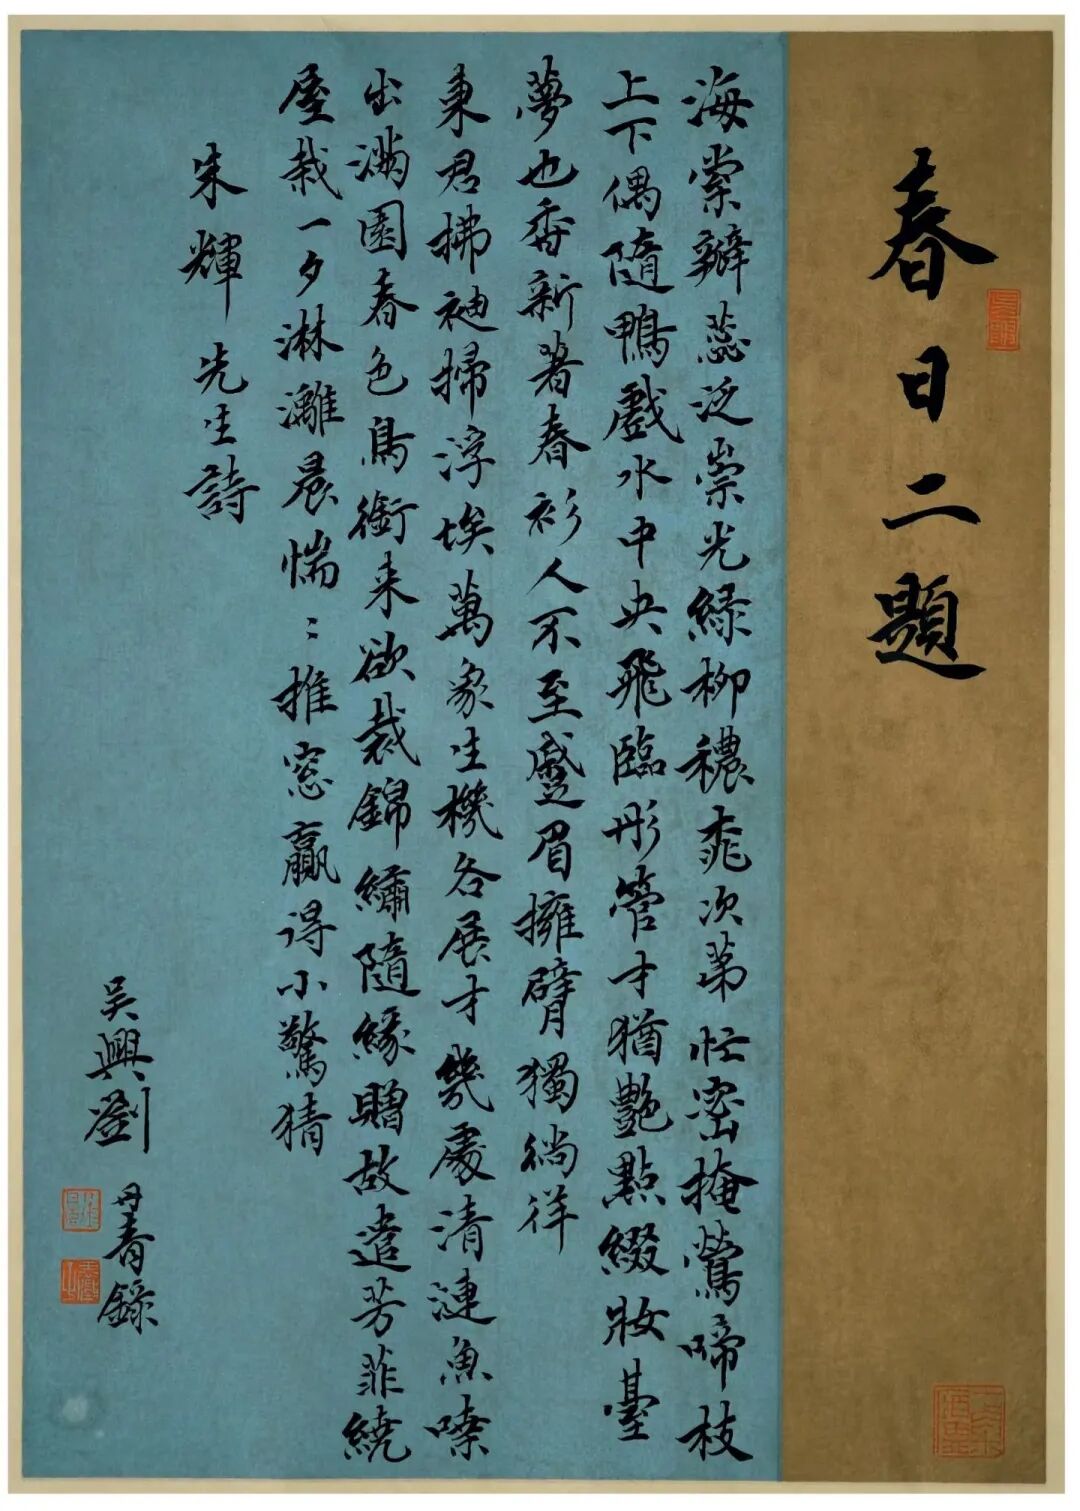 春日二題
海棠瓣蕊泛崇光綠柳穠桃次第忙密掩鶯啼枝
上下偶隨鴨戲水中央飛臨彤管才猶艷點綴妝臺
夢也香新著春衫人不至蹙眉擁臂獨徜徉
東君拂袖掃浮埃萬象生機各展才幾處清漣魚
出滿園春色鳥銜來欲裁錦繡隨緣贈故遣芳菲繞
屋栽一夕淋灕晨惴：推窓贏得小驚猜
朱輝先生詩
吳興劉丹青錄